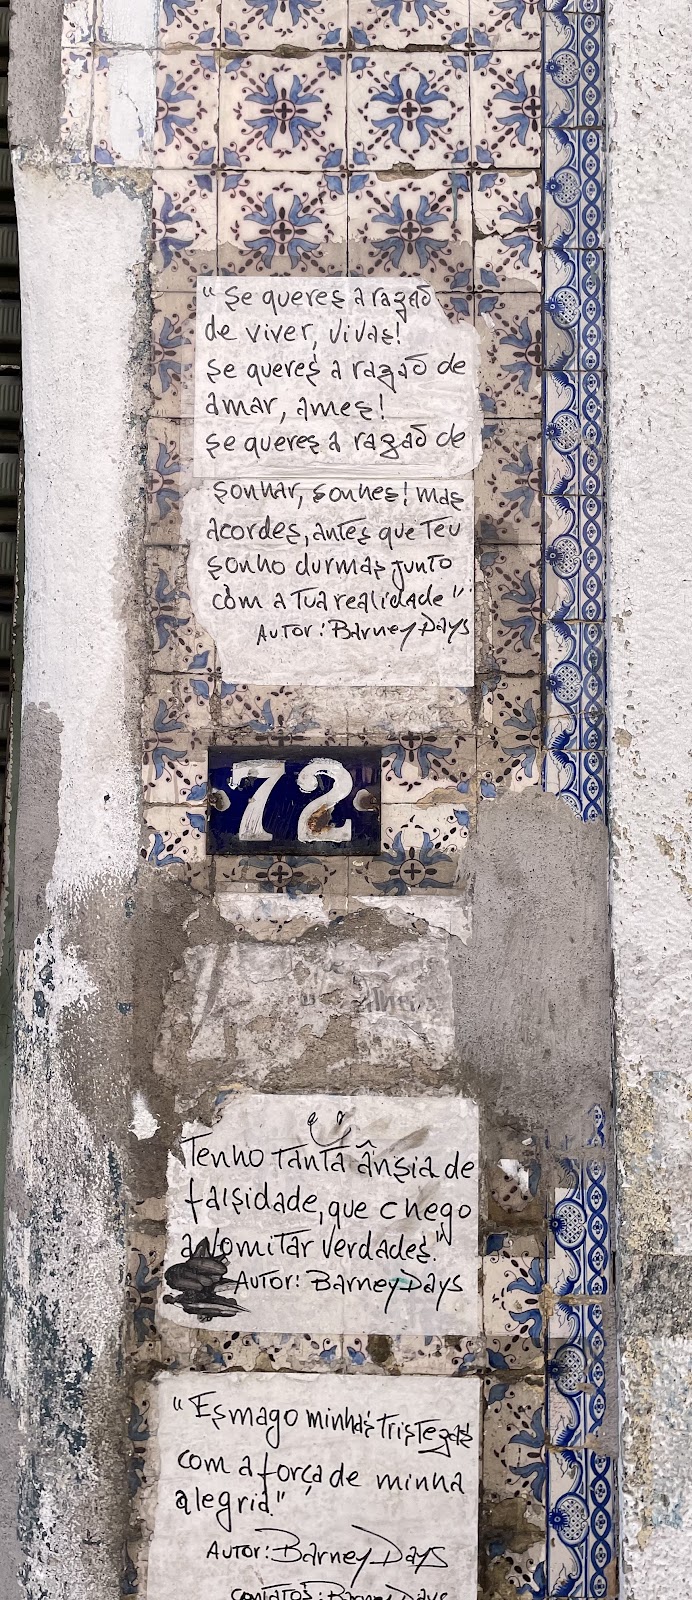 "Se queres a razaõ
de viver, vivas!
se queres a razaõ de
amar, ames!
se queres a razaõ de
sonhar, sonhes! mas
acordes, antes que teu
sonho durmas junto
com a tua realidade"
Autor: Barney Days
72
Tenho tanta ânsia de
falsidade, que chego
a vomitar verdades."
Autor: Barney Days
"Esmago minhas tristezas
com a força de minha
alegria"
Autor: Barney Days
contatos: Barney Days